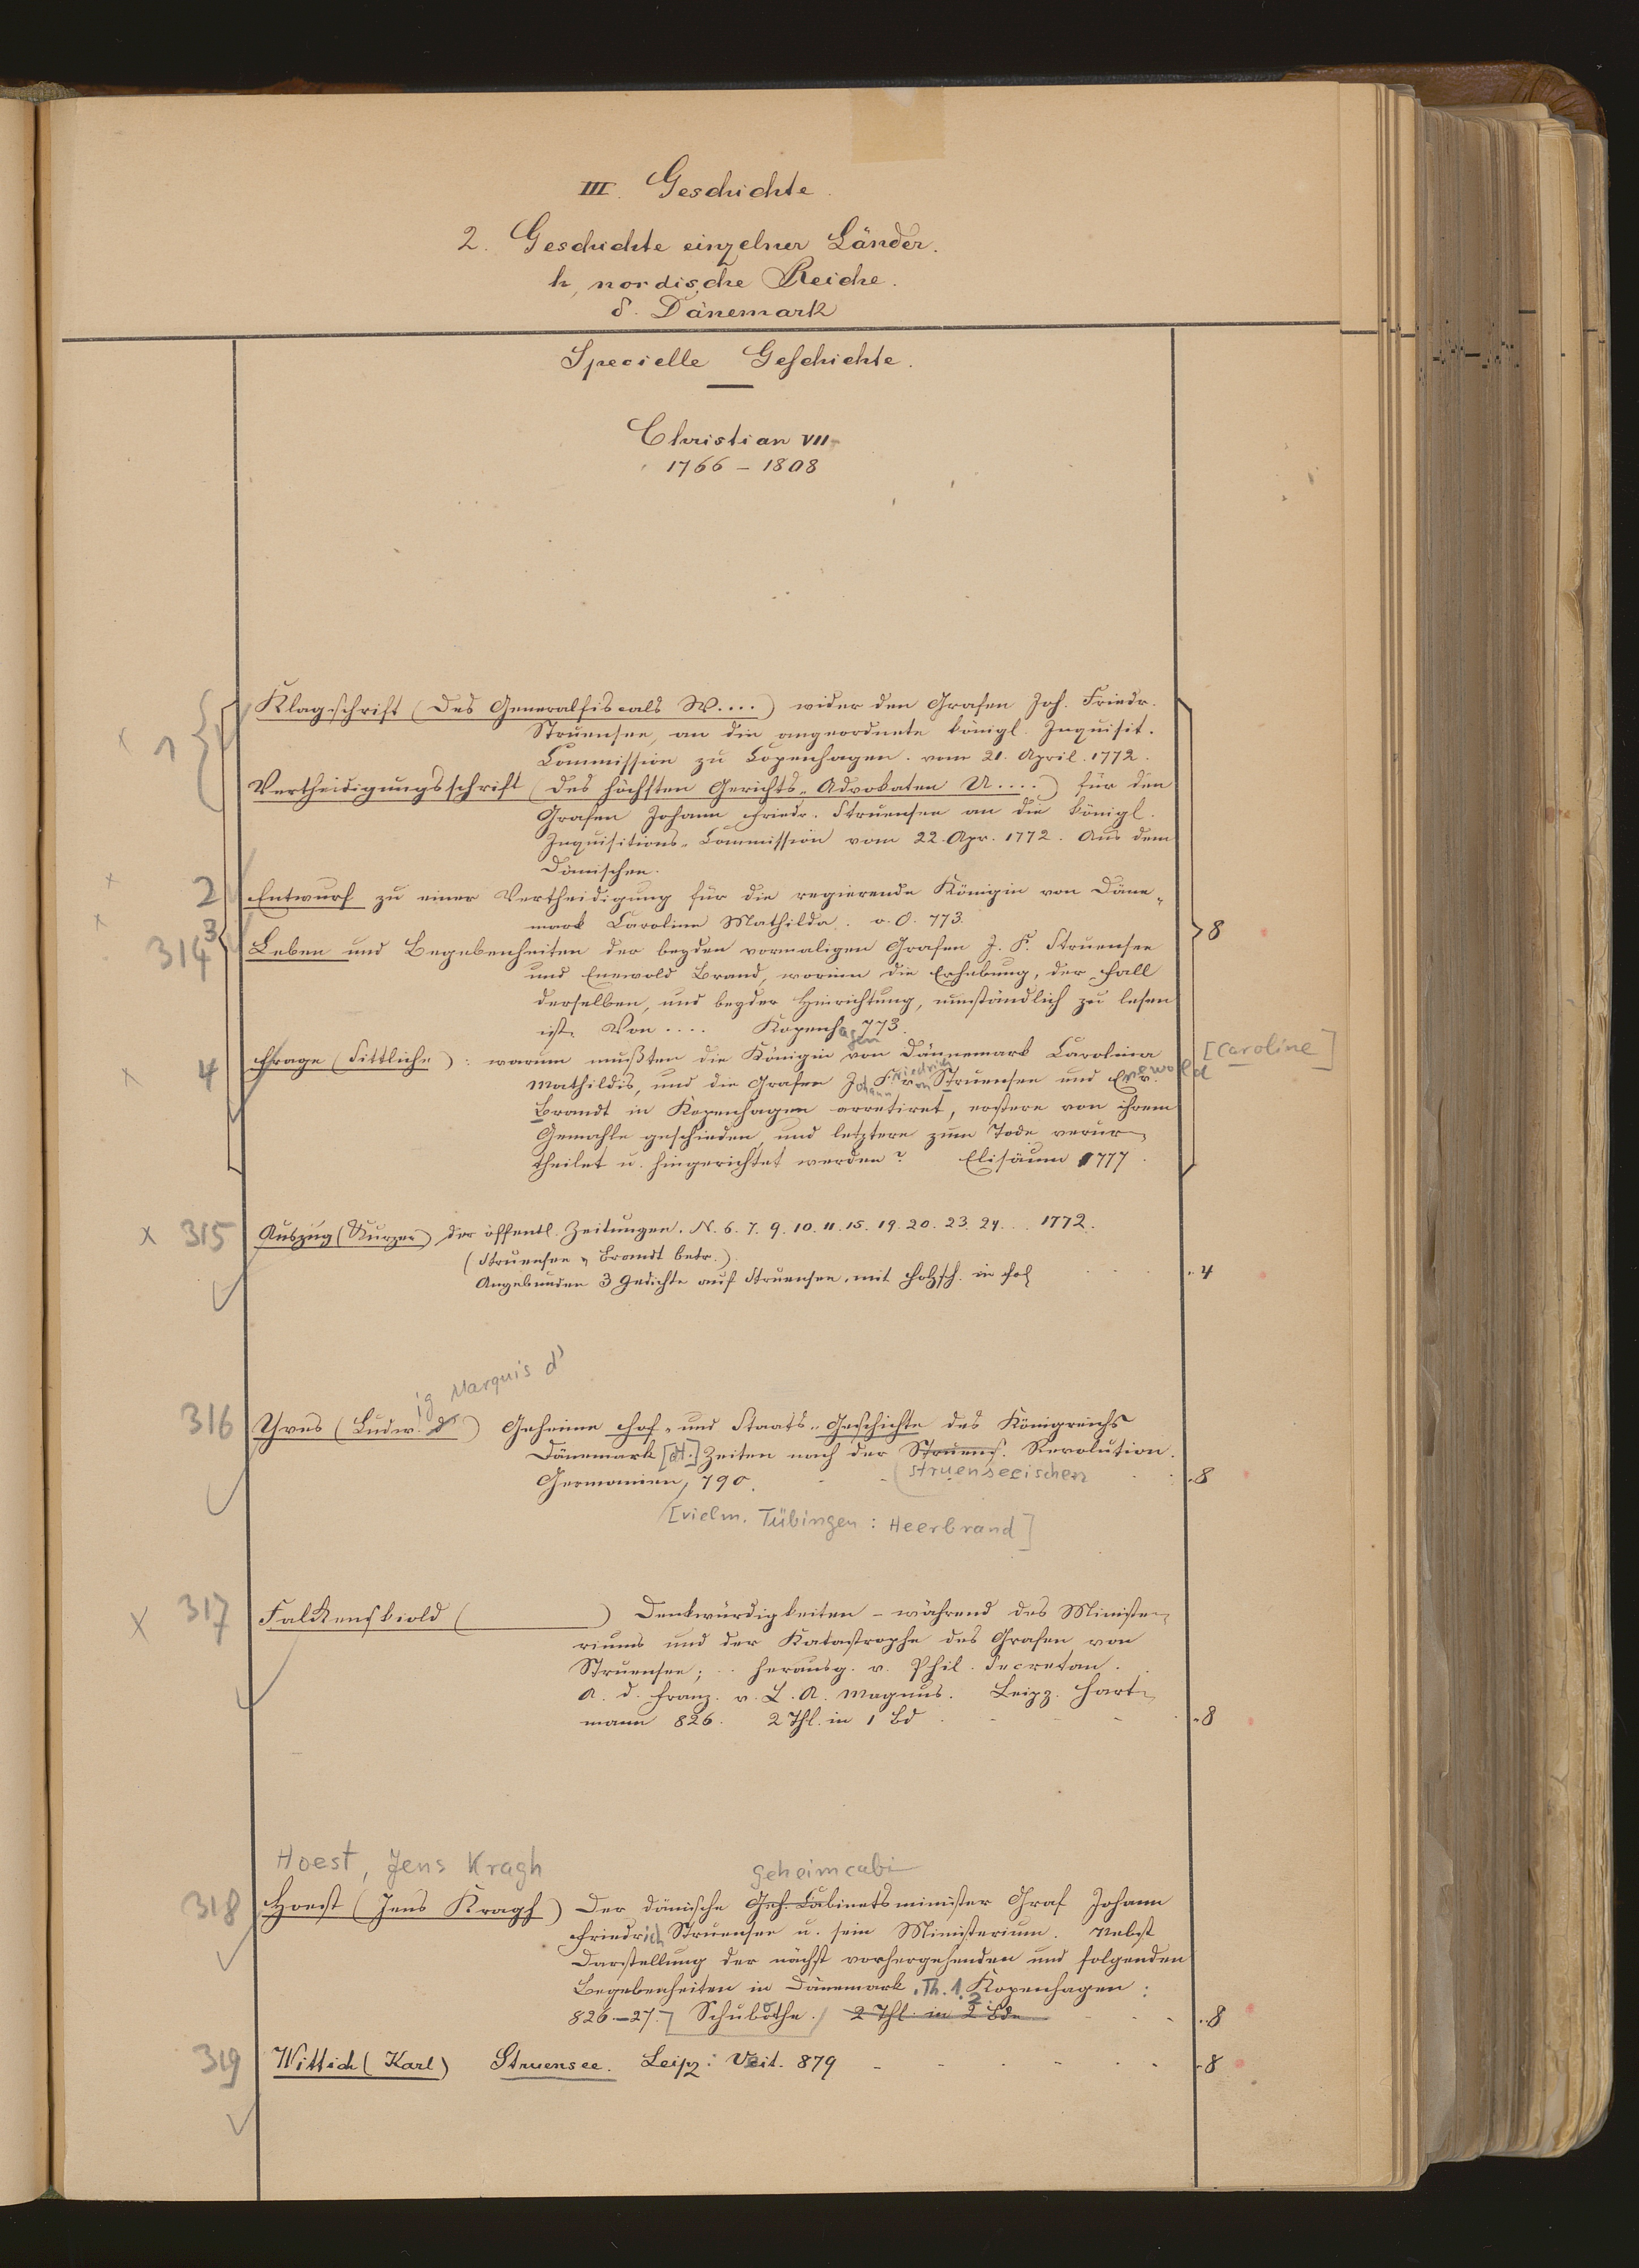 III. Geschichte.
2. Geschichte einzelner Länder.
h, nordische Reiche.
δ. Dänemark
Specielle Geschichte.
Christian VII.
1766 – 1808
1 Klagschrift (Des Generalfiscals W....) wider den Grafen Joh. Friedr.
Struensee, an die angeordnete königl. Inquisit.
Commission zu Copenhagen. vom 21. April. 1772.
Vertheidigungsschrift (des höchsten Gerichts-Advokaten U....) für den
Grafen Johann Friedr. Struensee an die königl.
Inquisitions-Commission vom 22. Apr. 1772. Aus dem
Dänischen.
2 Entwurf zu einer Vertheidigung für die regierende Königin von Däne-
mark Caroline Mathilda. o. O. 773.
314 3 Leben und Begebenheiten der beyden vormaligen Grafen J. F. Struensee 8
und Enewold Brand, worinn die Erhebung, der Fall
derselben, und beyder Hinrichtung, umständlich zu lesen
ist. Von .... Kopenhagen 773.
4 Frage (Sittliche): warum mußten die Königin von Dännemark Carolina [Caroline]
Mathildis, und die Grafen Johann Friedrich von Struensee und Enewold
Brandt in Kopenhagen arretiret, erstere von ihrem
Gemahle geschieden, und letztere zum Tode verur-
theilet u. hingerichtet werden? Elisäum 1777.
x 315 Auszug (Kurzer) der öffentl. Zeitungen. N. 6. 7. 9. 10. 11. 15. 19. 20. 23. 24... 1772.
(Struensee u. Brandt betr.)
Angebunden 3 Gedichte auf Struensee, mit Holzsch. in Fol. 4
ig Marquis d'
316 Yves (Ludw. d') Geheime Hof- und Staats-Geschichte des Königreichs
Dänemark [dt.] Zeiten nach der Struens. Revolution.
struenseeischen
Germanien, 790. 8
[vielm. Tübingen: Heerbrand]
x 317 Falkenskiold ( ) Denkwürdigkeiten – während des Ministe-
riums und der Katastrophe des Grafen von
Struensee; .. herausg. v. Phil. Secretan.
A. d. Franz. v. L. A. Magnus. Leipz. Hart-
mann 826. 2 Thl. in 1 Bd 8
Hoest, Jens Kragh
geheimcabi
318 Hoest (Jens Kragh) Der dänische Geh. Cabinetsminister Graf Johann
Friedrich Struensee u. sein Ministerium. Nebst
Darstellung der nächst vorhergehenden und folgenden
Begebenheiten in Dänemark. Th. 1. 2. Kopenhagen:
826–27. Schubothe. 2 Thl. in 2 Bde 8
319 Wittich (Karl) Struensee. Leipz: Veit. 879 8